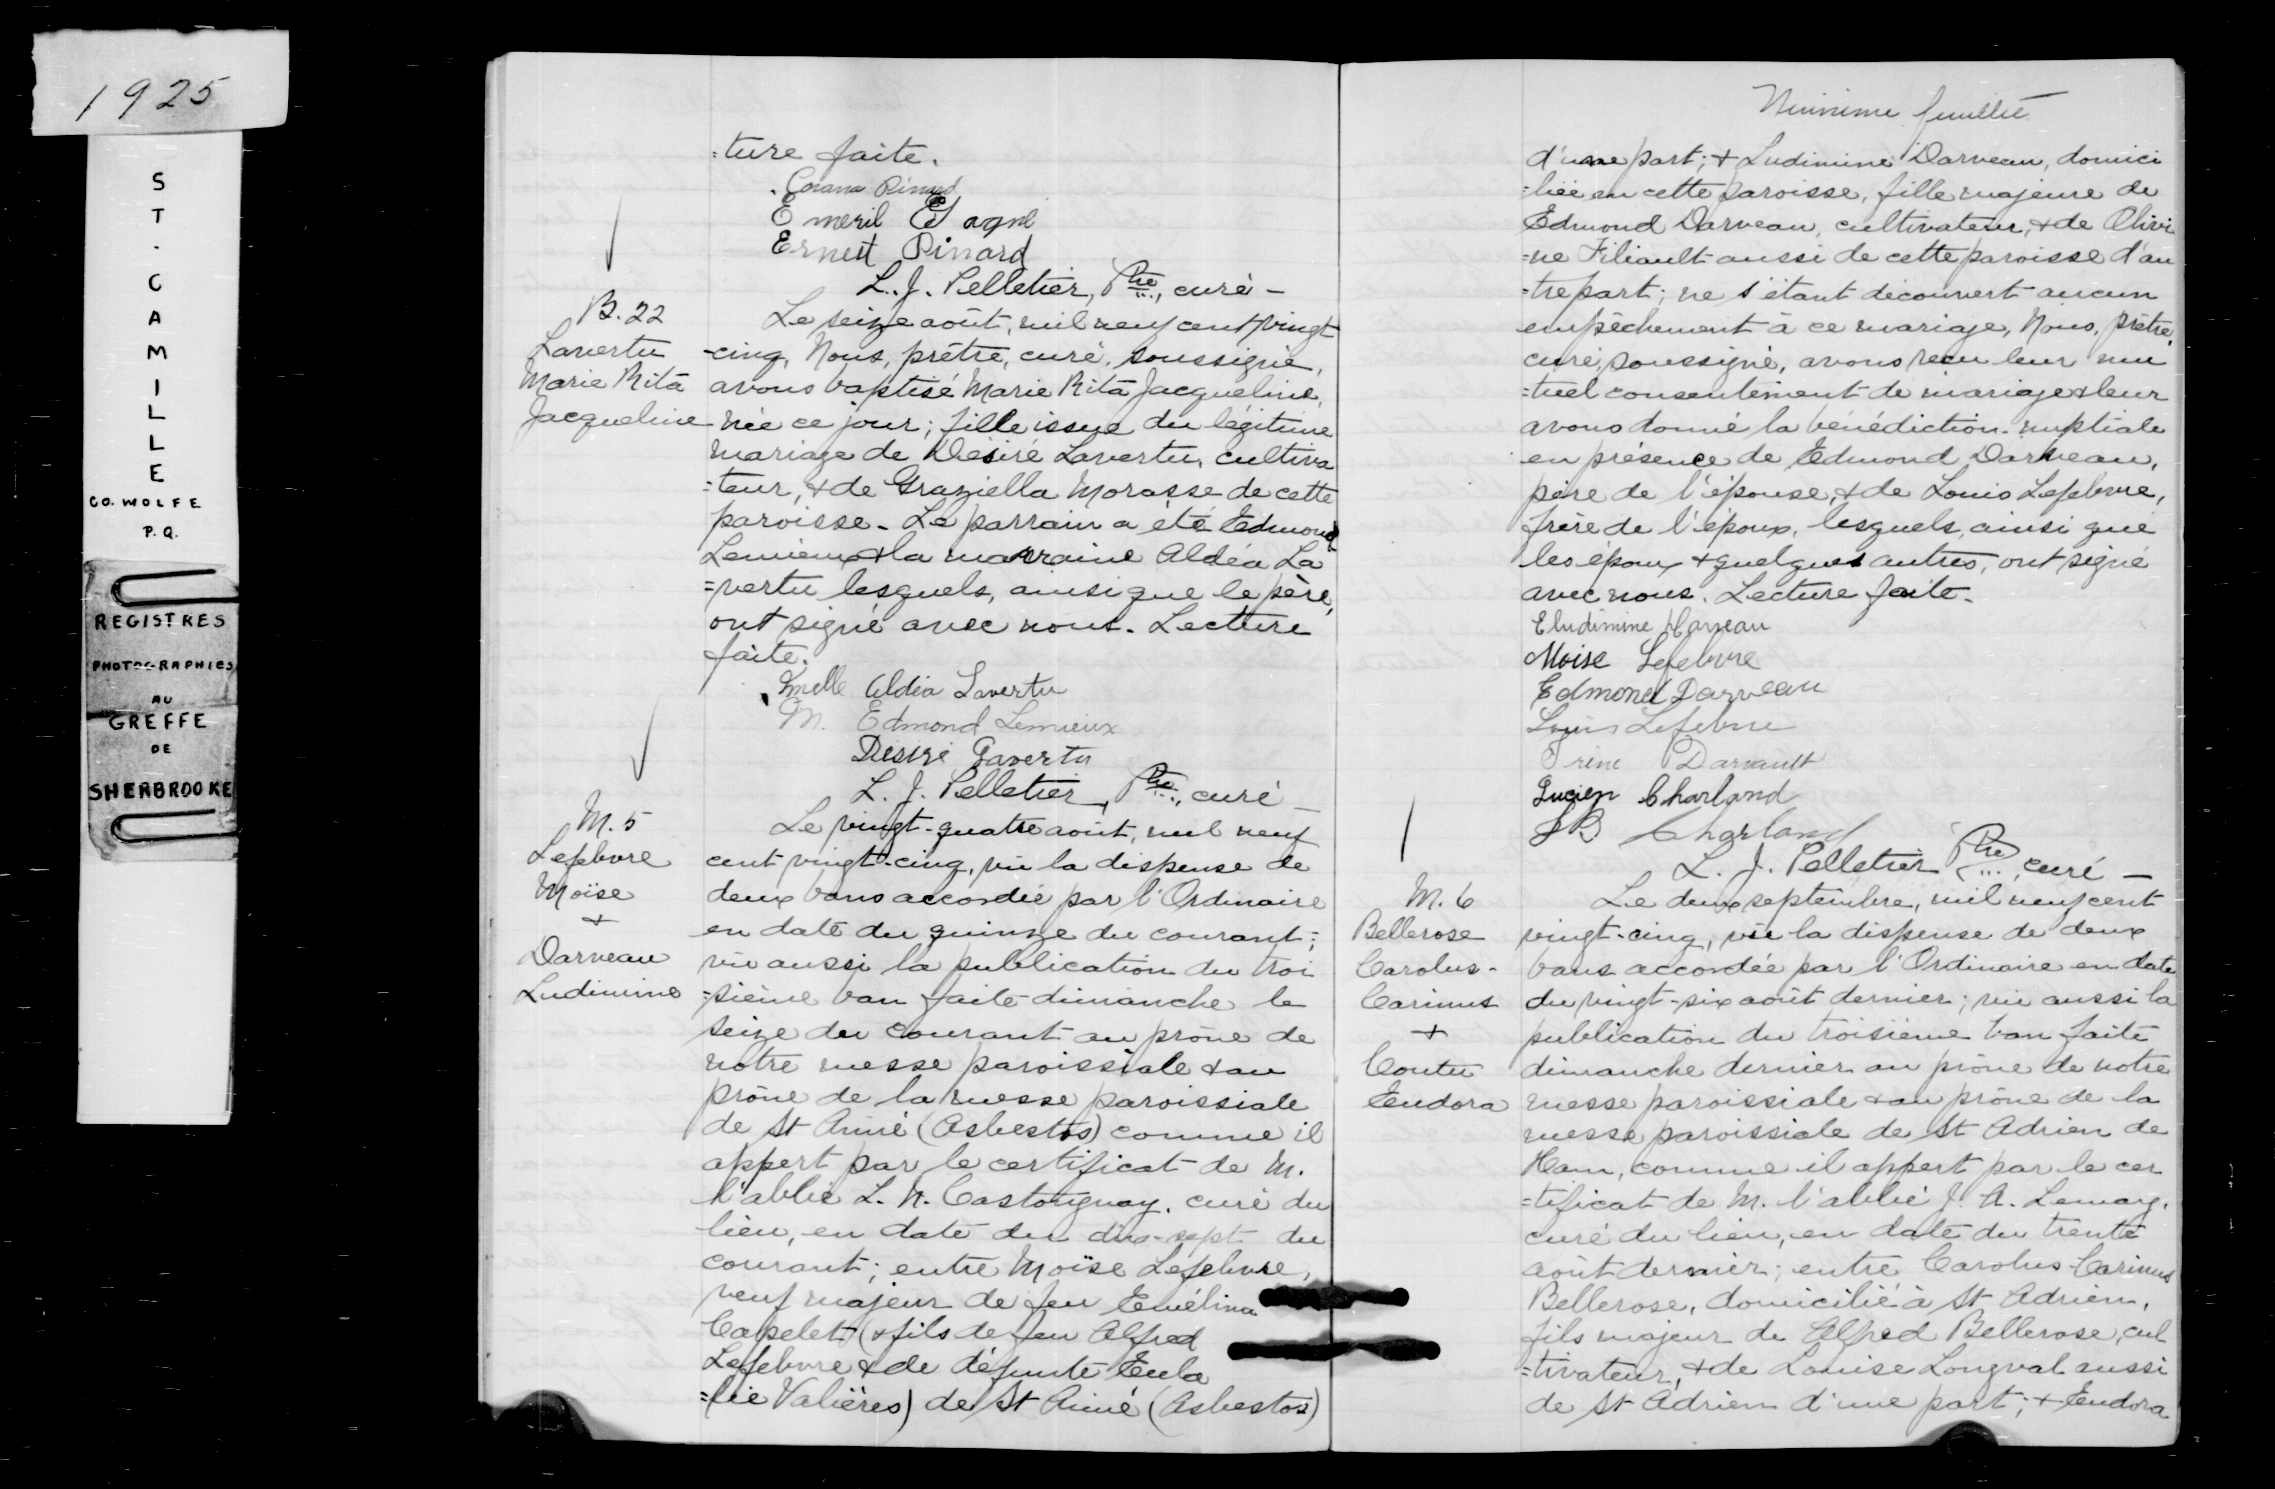 1925
ST. CAMILLE
CO. WOLFE
P.Q.
REGISTRES
PHOTOGRAPHIES
AU
GREFFE
DE
SHERBROOKE
=ture faite.
Pinard
Emeril Gagné
Ernest Pinard
L. J. Pelletier, Ptre, curé -
B. 22
Lavertu
Marie Rita
Jacqueline
Le seize août, mil neuf cent vingt
-cinq, Nous, prêtre, curé, soussigné,
avons baptisé Marie Rita Jacqueline,
née ce jour; fille issue du légitime
mariage de Désiré Lavertu, cultiva
=teur, & de Graziella Morasse de cette
paroisse - Le parrain a été Edmond
Lemieux & la marraine Aldéa La
=vertu lesquels, ainsi que le père,
ont signé avec nous. Lecture
faite.
Melle Aldéa Lavertu
M. Edmond Lemieux
Desiré Lavertu
L. J. Pelletier, Ptre, curé -
M. 5
Lefebvre
Moïse
&
Darveau
Ludimine
Le vingt-quatre août, mil neuf
cent vingt-cinq, vu la dispense de
deux bans accordée par l'Ordinaire
en date du quinze du courant;
vu aussi la publication du troi
=sième ban faite dimanche le
seize du courant au prône de
notre messe paroissiale & au
prône de la messe paroissiale
de St Aimé (Asbestos) comme il
appert par le certificat de M.
l'abbé L. N. Castonguay, curé du
lieu, en date du dix-sept du
courant; entre Moïse Lefebvre,
veuf majeur de feu Emélina
Capelet (& fils de feu Alfred
Lefebvre & de défunte Eula
=lie Valières) de St Aimé (Asbestos)
Neuvième feuillet
d'une part; & Ludimine Darveau, domici
=liée en cette paroisse, fille majeure de
Edmond Darveau, cultivateur, & de Olivi
=ne Filiault aussi de cette paroisse d'au
=tre part; ne s'étant découvert aucun
empêchement à ce mariage, Nous, prêtre,
curé, soussigné, avons reçu leur mu
=tuel consentement de mariage & leur
avons donné la bénédiction nuptiale
en présence de Edmond Darveau,
père de l'épouse, & de Louis Lefebvre,
frère de l'époux, lesquels, ainsi que
les époux & quelques autres, ont signé
avec nous. Lecture faite.
Eludimine Darveau
Moise Lefebvre
Edmond Darveau
Louis Lefebvre
Irène Darvault
Lucien Charland
J B Charland
L. J. Pelletier Ptre, curé -
M. 6
Bellerose
Carolus-
Carinus
&
Coutu
Eudora
Le deux septembre, mil neuf cent
vingt-cinq, vu la dispense de deux
bans accordée par l'Ordinaire en date
du vingt-six août dernier; vu aussi la
publication du troisième ban faite
dimanche dernier au prône de notre
messe paroissiale & au prône de la
messe paroissiale de St Adrien de
Ham, comme il appert par le cer
=tificat de M. l'abbé J. A. Lemay,
curé du lieu, en date du trente
août dernier; entre Carolus-Carinus
Bellerose, domicilié à St Adrien,
fils majeur de Alfred Bellerose, cul
=tivateur, & de Louise Longval aussi
de St Adrien d'une part; & Eudora